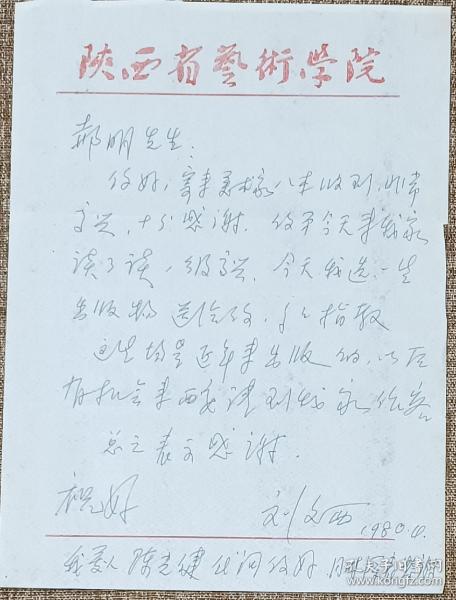 陕西省藝術学院
郝明先生:
你好,寄来美术家八本收到,非常
高兴,十分感谢.你平今天来我家
谈了谈,很高兴.今天我选一些
出版物送给你,多多指教
这些均是近年来出版的,以后
有机会来西安请到我家作客
总之表示感谢.
祝好
刘文西
1980.
我爱人陈光健代问你好
孔夫子旧书网
www.kongfz.com